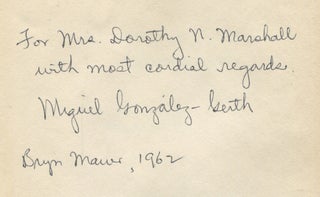 For Mrs. Dorothy N. Marshall
with most cordial regards.
Miguel González-Gerth
Bryn Mawr, 1962